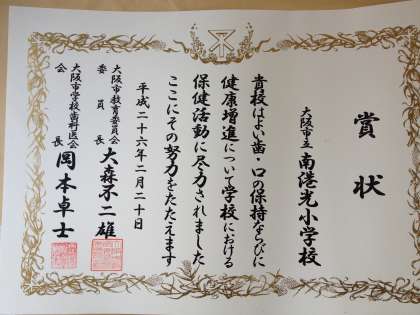 賞状
大阪市立 南港光小学校
貴校はよい歯・口の保持ならびに
健康増進について学校における
保健活動に尽力されました
ここにその努力をたたえます
平成二十六年二月二十日
大阪市教育委員会
委員長 大森不二雄
大阪市学校歯科医会
会長 岡本卓士